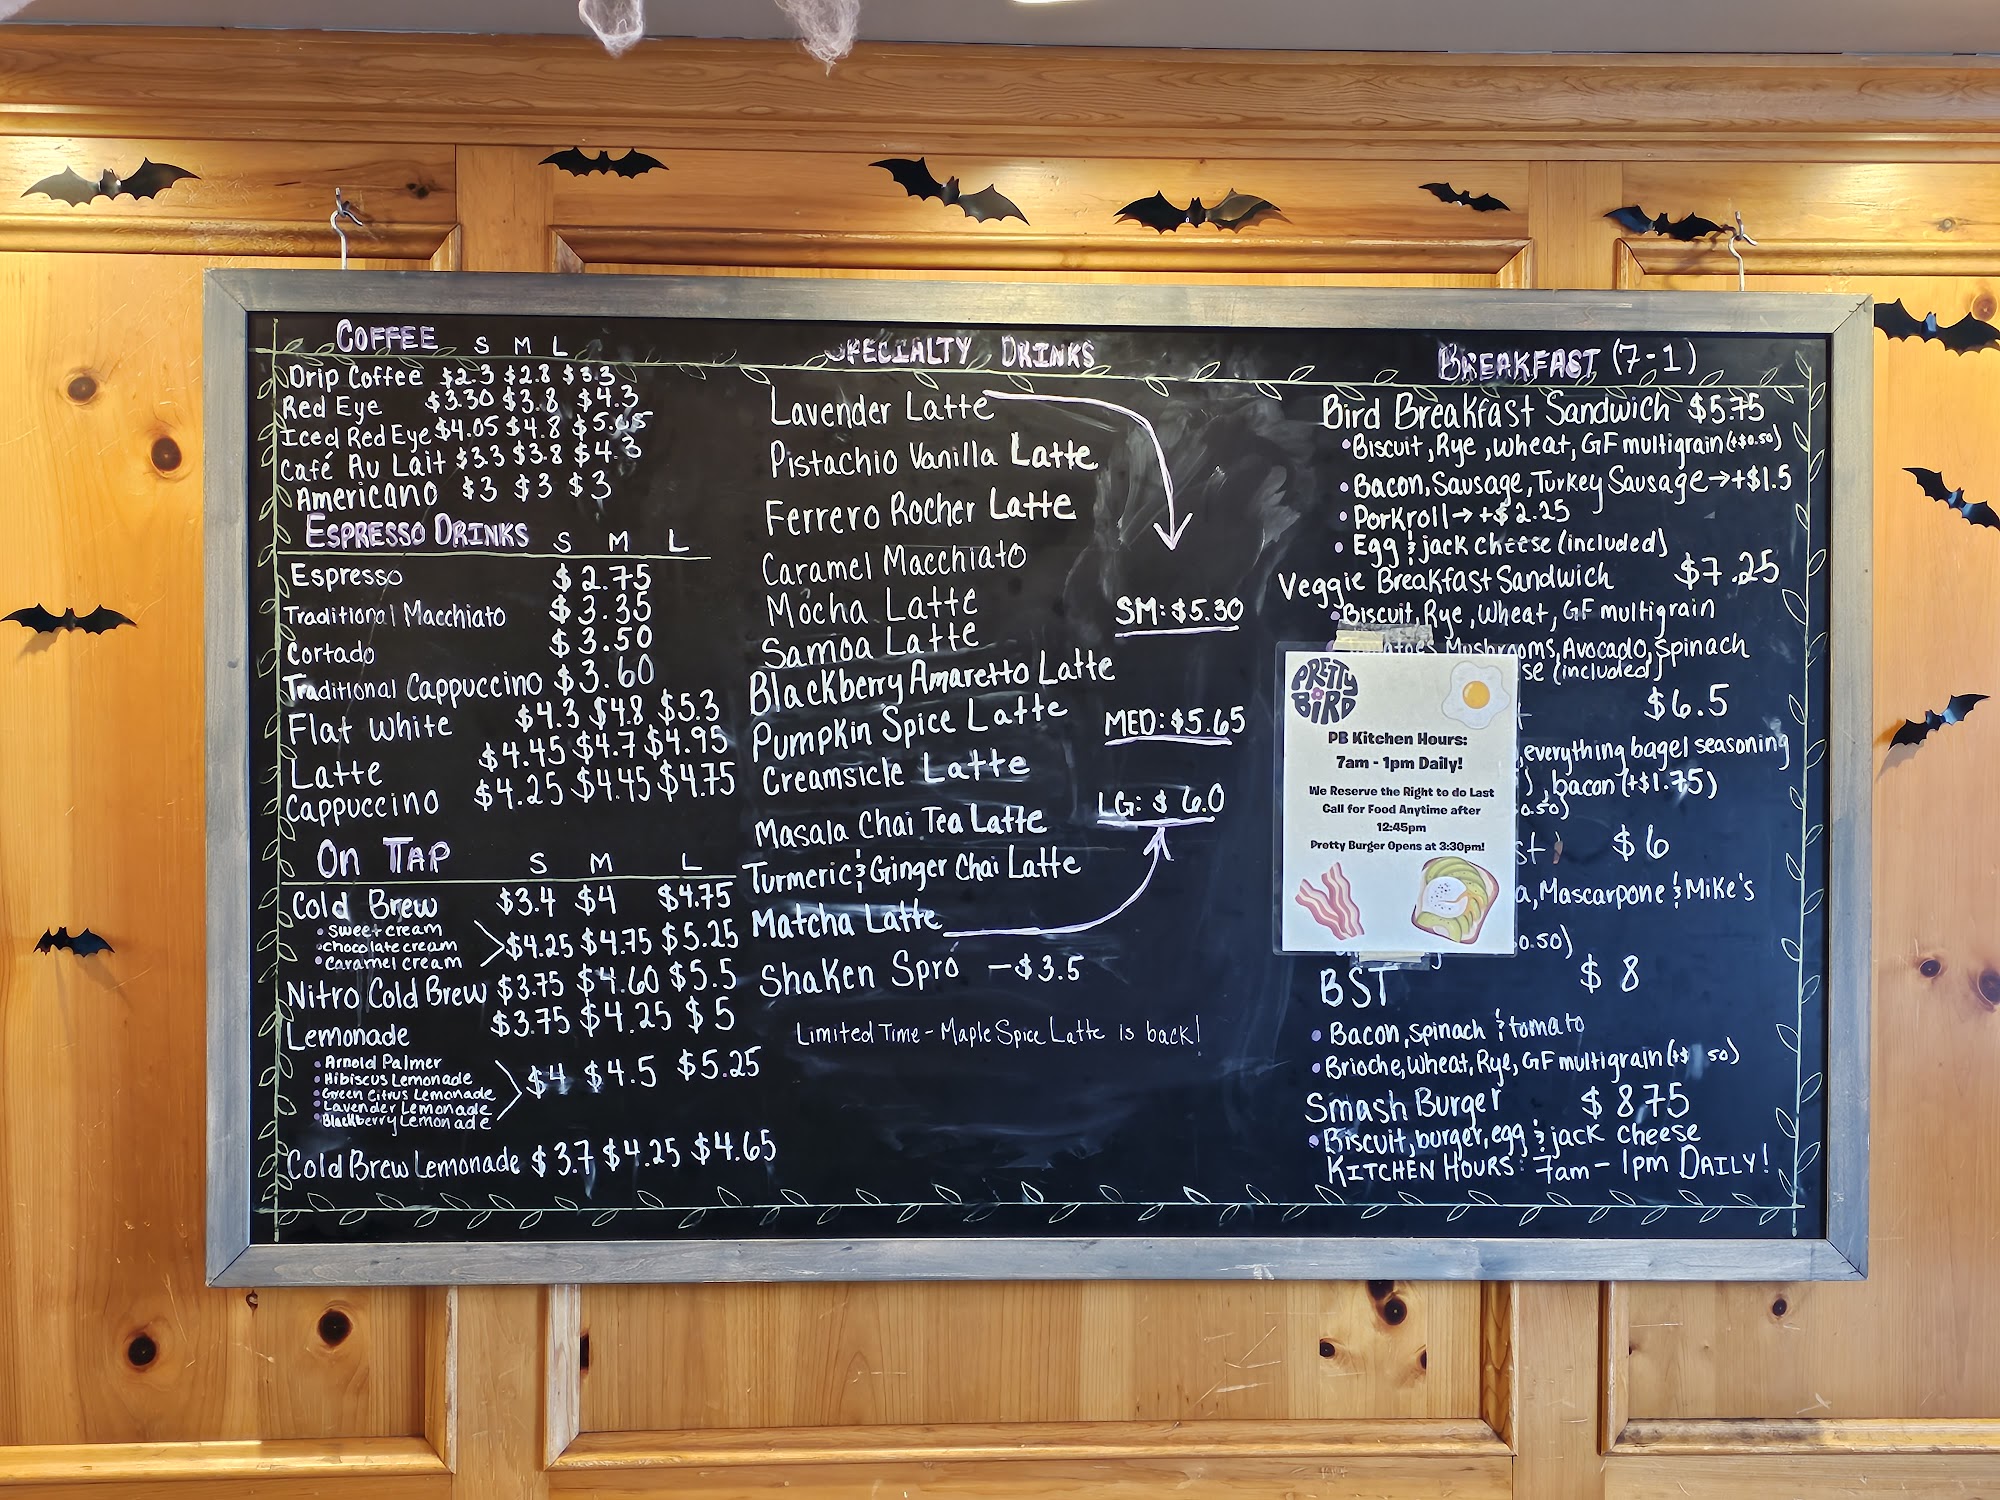 COFFEE S M L
Drip Coffee $2.3 $2.8 $3.3
Red Eye $3.30 $3.8 $4.3
Iced Red Eye $4.05 $4.8 $5.05
Café Au Lait $3.3 $3.8 $4.3
Americano $3 $3 $3
ESPRESSO DRINKS S M L
Espresso $2.75
Traditional Macchiato $3.35
Cortado $3.50
Traditional Cappuccino $3.60
Flat White $4.3 $4.8 $5.3
Latte $4.45 $4.7 $4.95
Cappuccino $4.25 $4.45 $4.75
ON TAP S M L
Cold Brew $3.4 $4 $4.75
• Sweet cream
• chocolate cream $4.25 $4.75 $5.25
• Caramel cream
Nitro Cold Brew $3.75 $4.60 $5.5
Lemonade $3.75 $4.25 $5
• Arnold Palmer
• Hibiscus Lemonade $4 $4.5 $5.25
• Green Citrus Lemonade
• Lavender Lemonade
• Blackberry Lemonade
Cold Brew Lemonade $3.7 $4.25 $4.65
SPECIALTY DRINKS
Lavender Latte
Pistachio Vanilla Latte
Ferrero Rocher Latte
Caramel Macchiato
Mocha Latte
Samoa Latte
Blackberry Amaretto Latte
Pumpkin Spice Latte
Creamsicle Latte
Masala Chai Tea Latte
Turmeric & Ginger Chai Latte
Matcha Latte
SM: $5.30
MED: $5.65
LG: $6.0
Shaken Spro - $3.5
Limited Time - Maple Spice Latte is back!
BREAKFAST (7-1)
Bird Breakfast Sandwich $5.75
• Biscuit, Rye, Wheat, GF multigrain (+$0.50)
• Bacon, Sausage, Turkey Sausage → +$1.5
• Porkroll → +$2.25
• Egg & jack cheese (included)
Veggie Breakfast Sandwich $7.25
• Biscuit, Rye, Wheat, GF multigrain
Mushrooms, Avocado, Spinach
(included)
$6.5
, everything bagel seasoning
), bacon (+$1.75)
0.50)
$6
, Mascarpone & Mike's
0.50)
PRETTY BIRD
PB Kitchen Hours:
7am - 1pm Daily!
We Reserve the Right to do Last
Call for Food Anytime after
12:45pm
Pretty Burger Opens at 3:30pm!
BST $8
• Bacon, Spinach & tomato
• Brioche, Wheat, Rye, GF multigrain (+$ 50)
Smash Burger $8 75
• Biscuit, burger, egg & jack cheese
KITCHEN HOURS: 7am - 1pm DAILY!